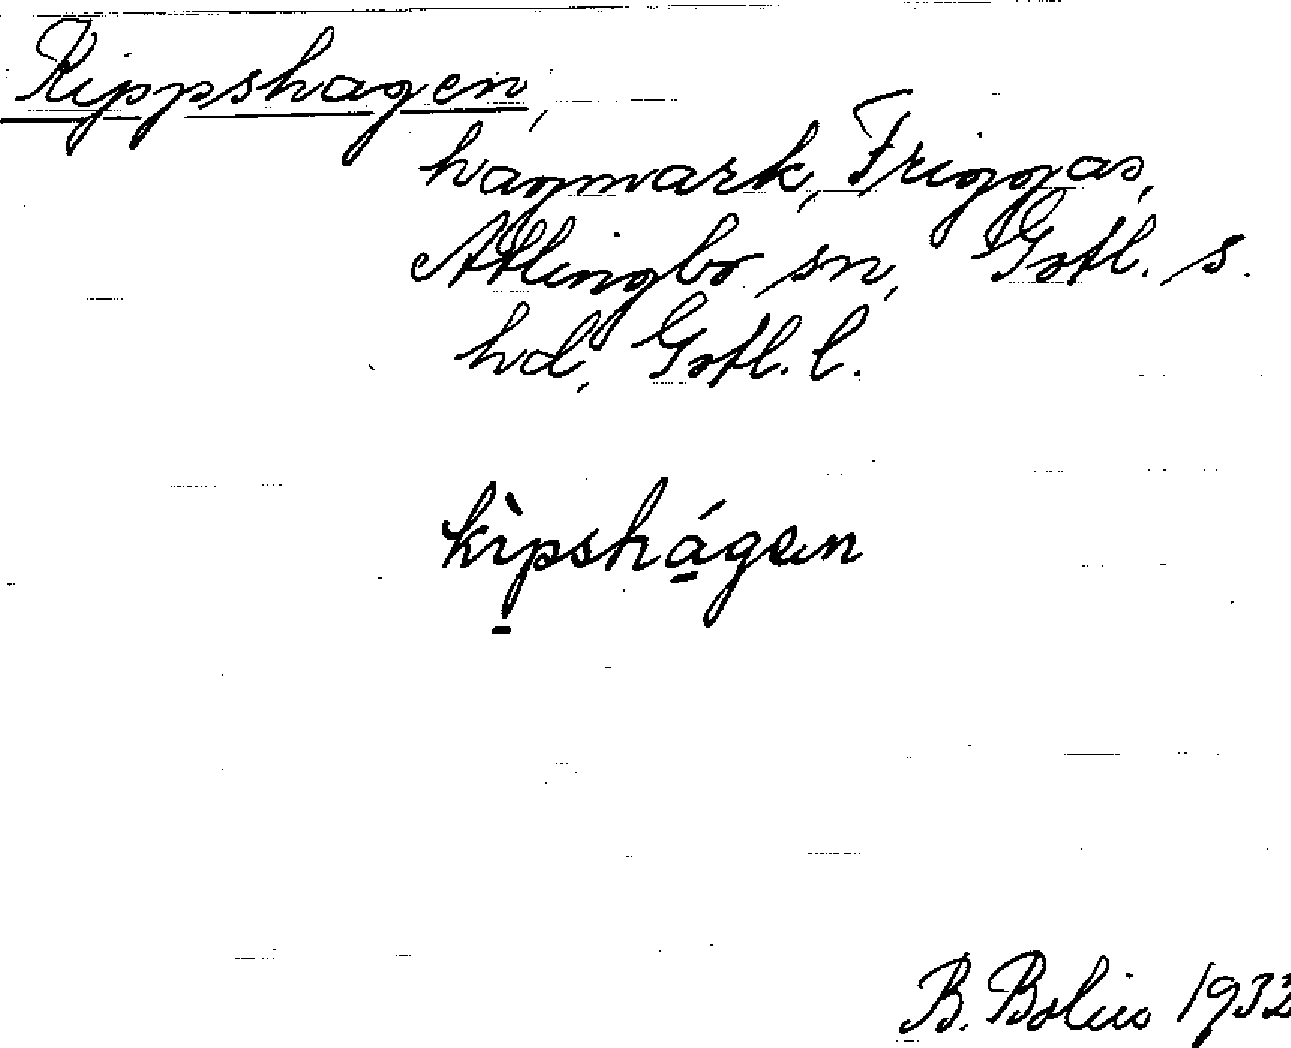 Kippshagen,
hagmark, Friggas,
Atlingbo sn, Gotl. s.
hd, Gotl. l.
kìpshágen
B. Bolin 1932